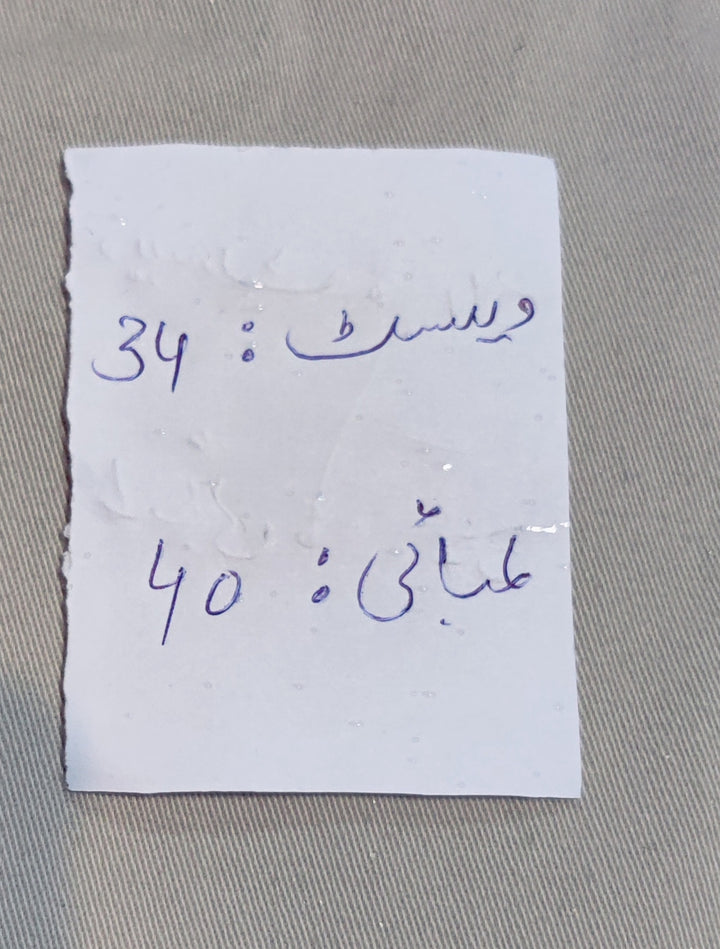 ویسٹ : 34
لمبائی : 40